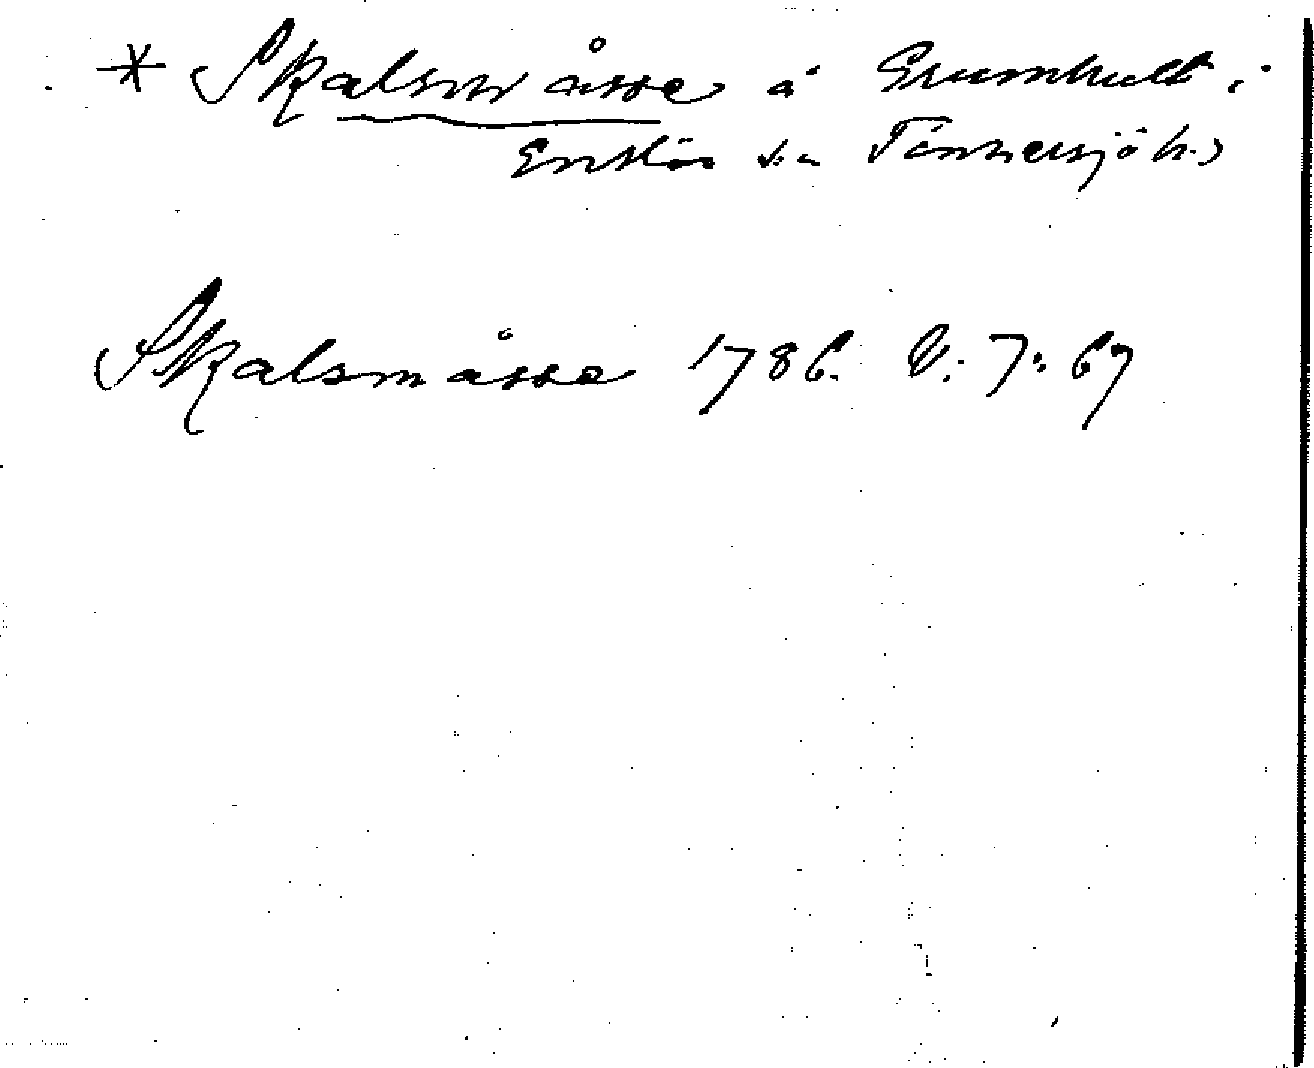 * Skalsmåsse å Grumhult i
Enslöv s:n Tönnersjö h.)
Skalsmåsse 1786. V. 7: 67